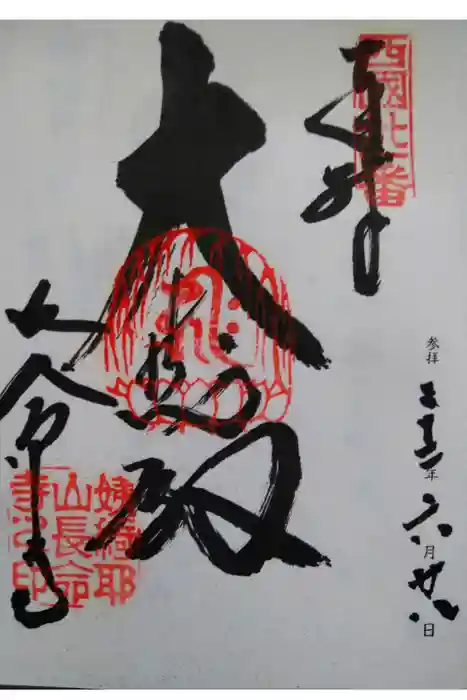 西國卅一番
奉拝
参拝
年六月廿八日
大悲殿
長命寺
姨綺耶
山長命
寺之印